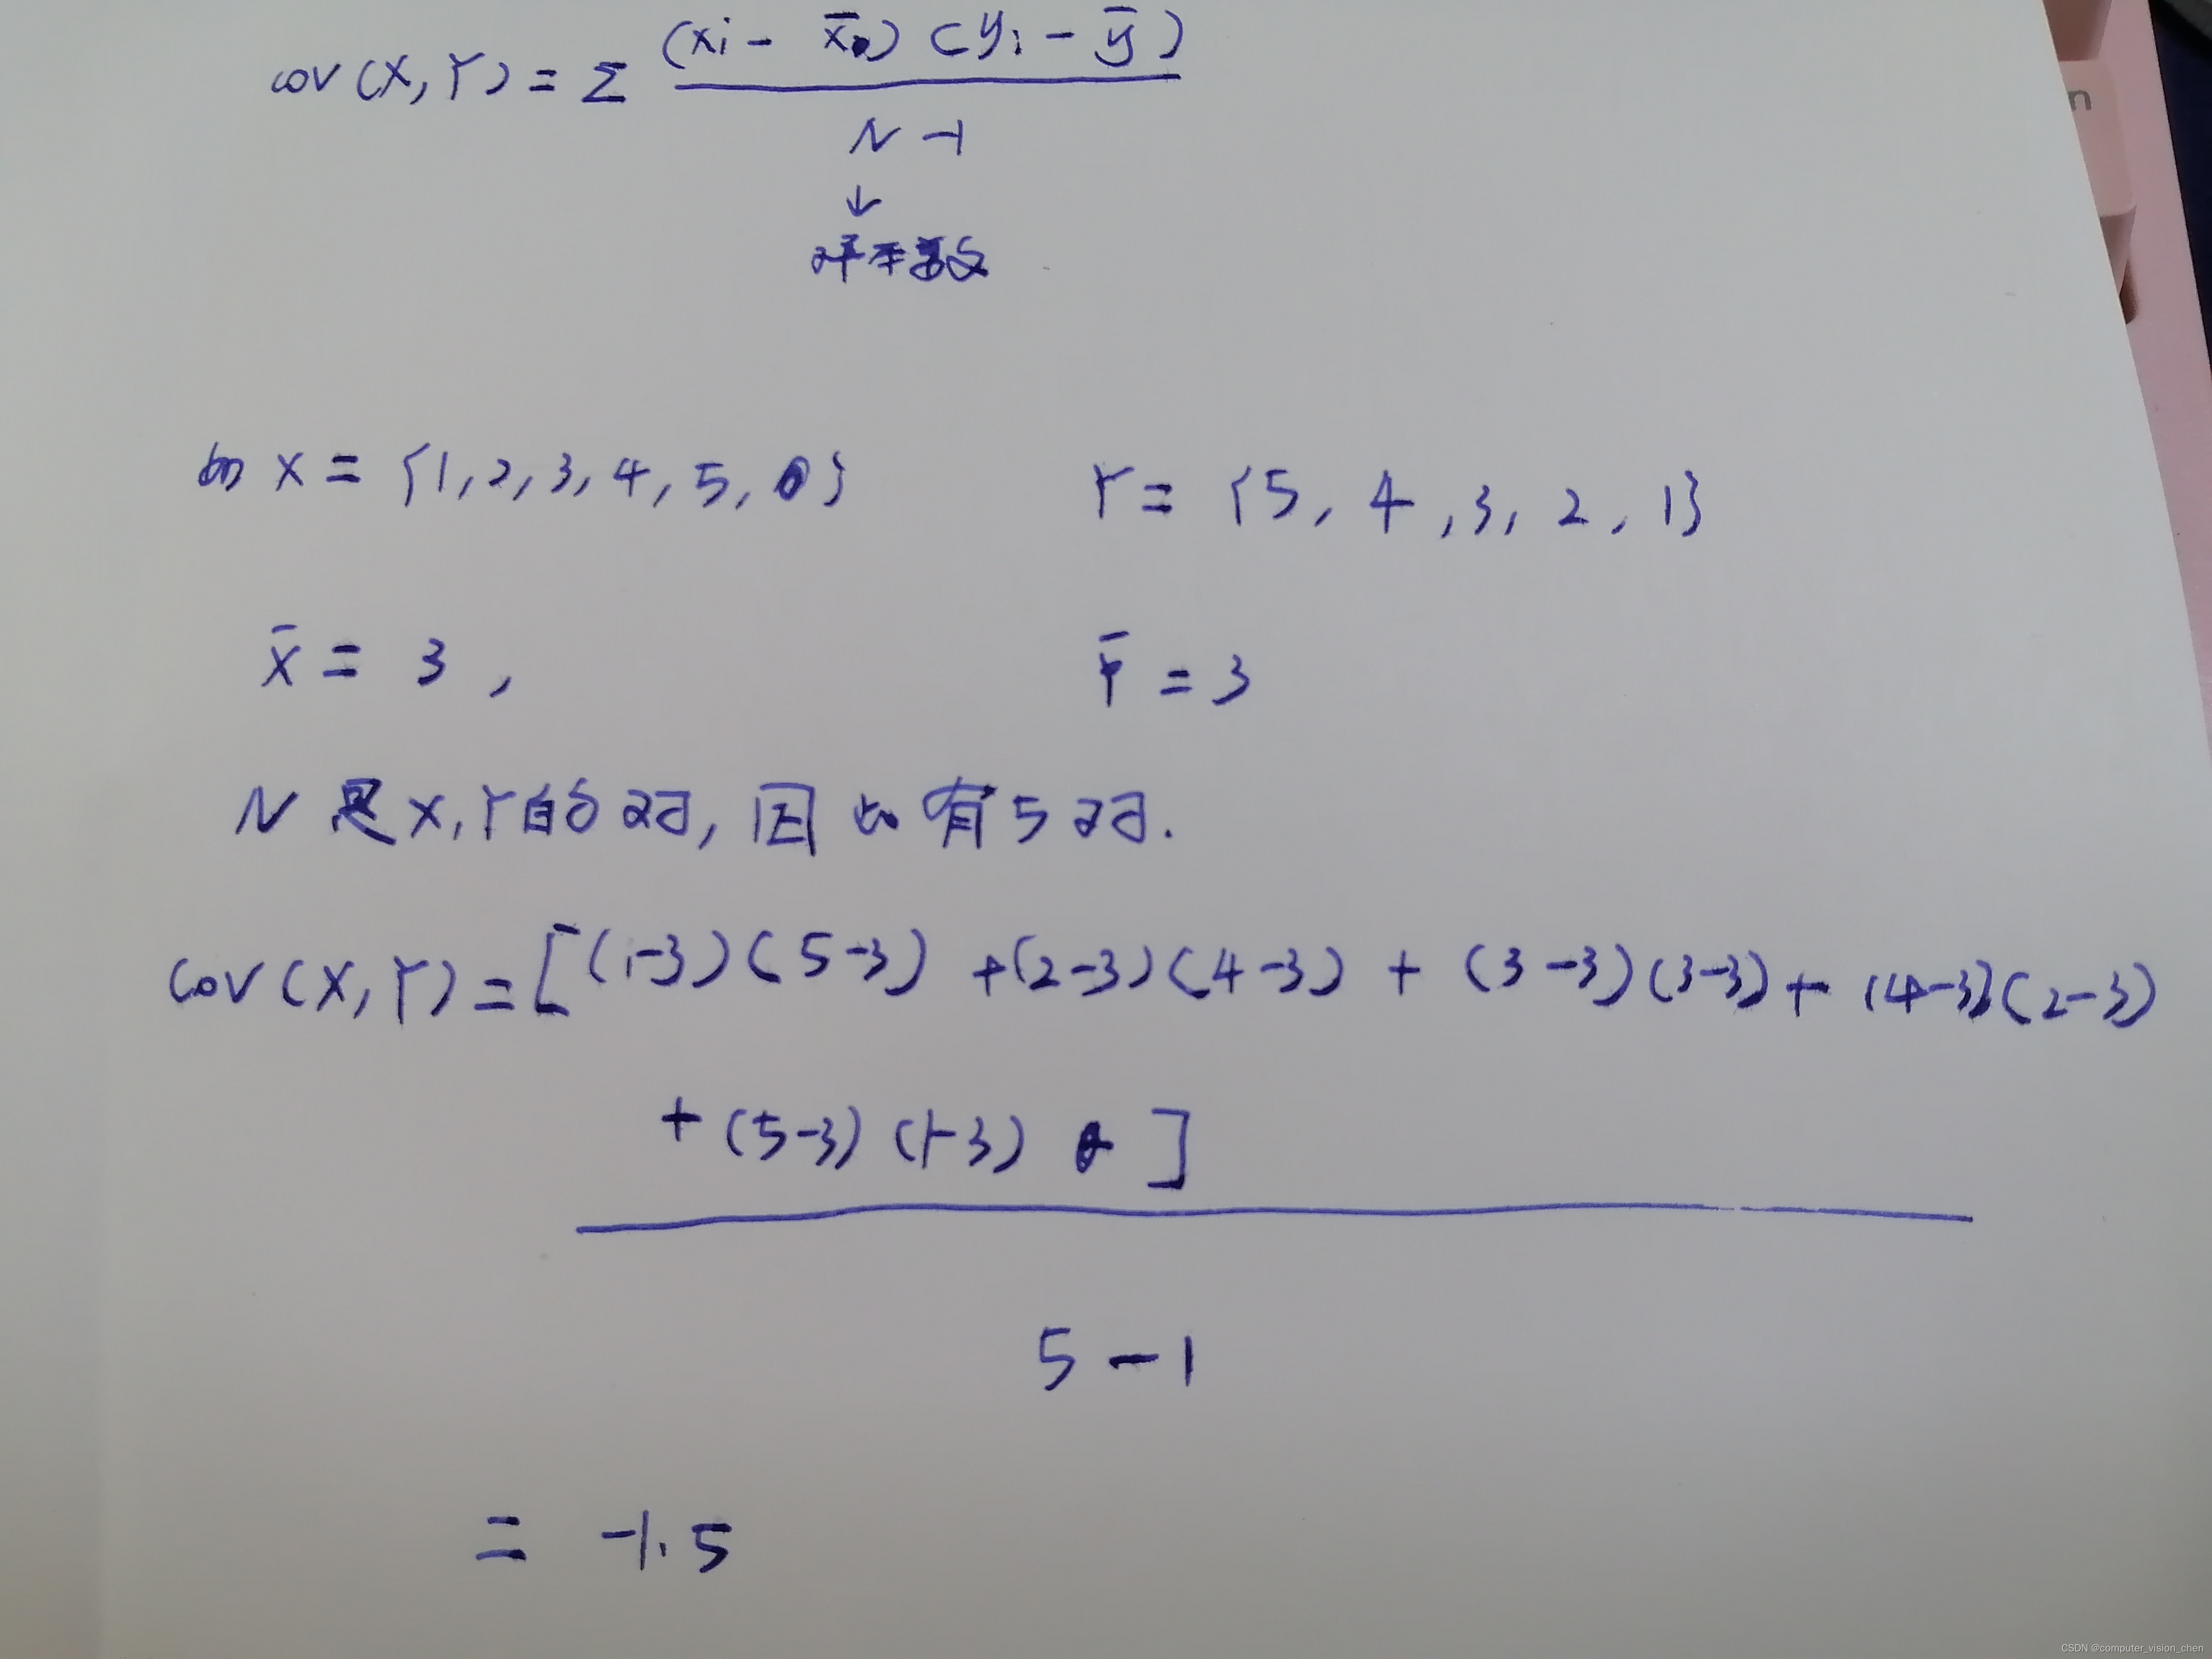 cov(X,Y) = Σ (xi - x̄)(yi - ȳ)
N-1
↓
样本数
如 X = {1,2,3,4,5, } Y = {5,4,3,2,1}
x̄ = 3, Ȳ = 3
N 是 X,Y的对, 因此有5对.
cov(X,Y) = [(1-3)(5-3) +(2-3)(4-3) + (3-3)(3-3) + (4-3)(2-3)
+ (5-3)(1-3) ]
5-1
= -1.5
n
CSDN @computer_vision_chen